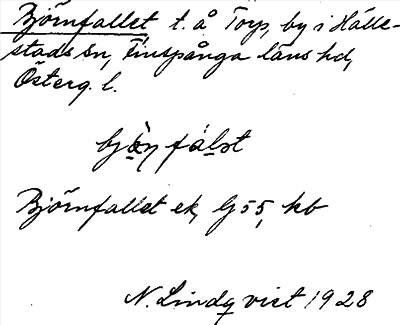 Björnfallet t. å Torp, by i Hälle-
stads sn, Finspånga läns hd,
Österg. l.
fålst
Björnfallet ek, G 55, kb
N. Lindqvist 1928